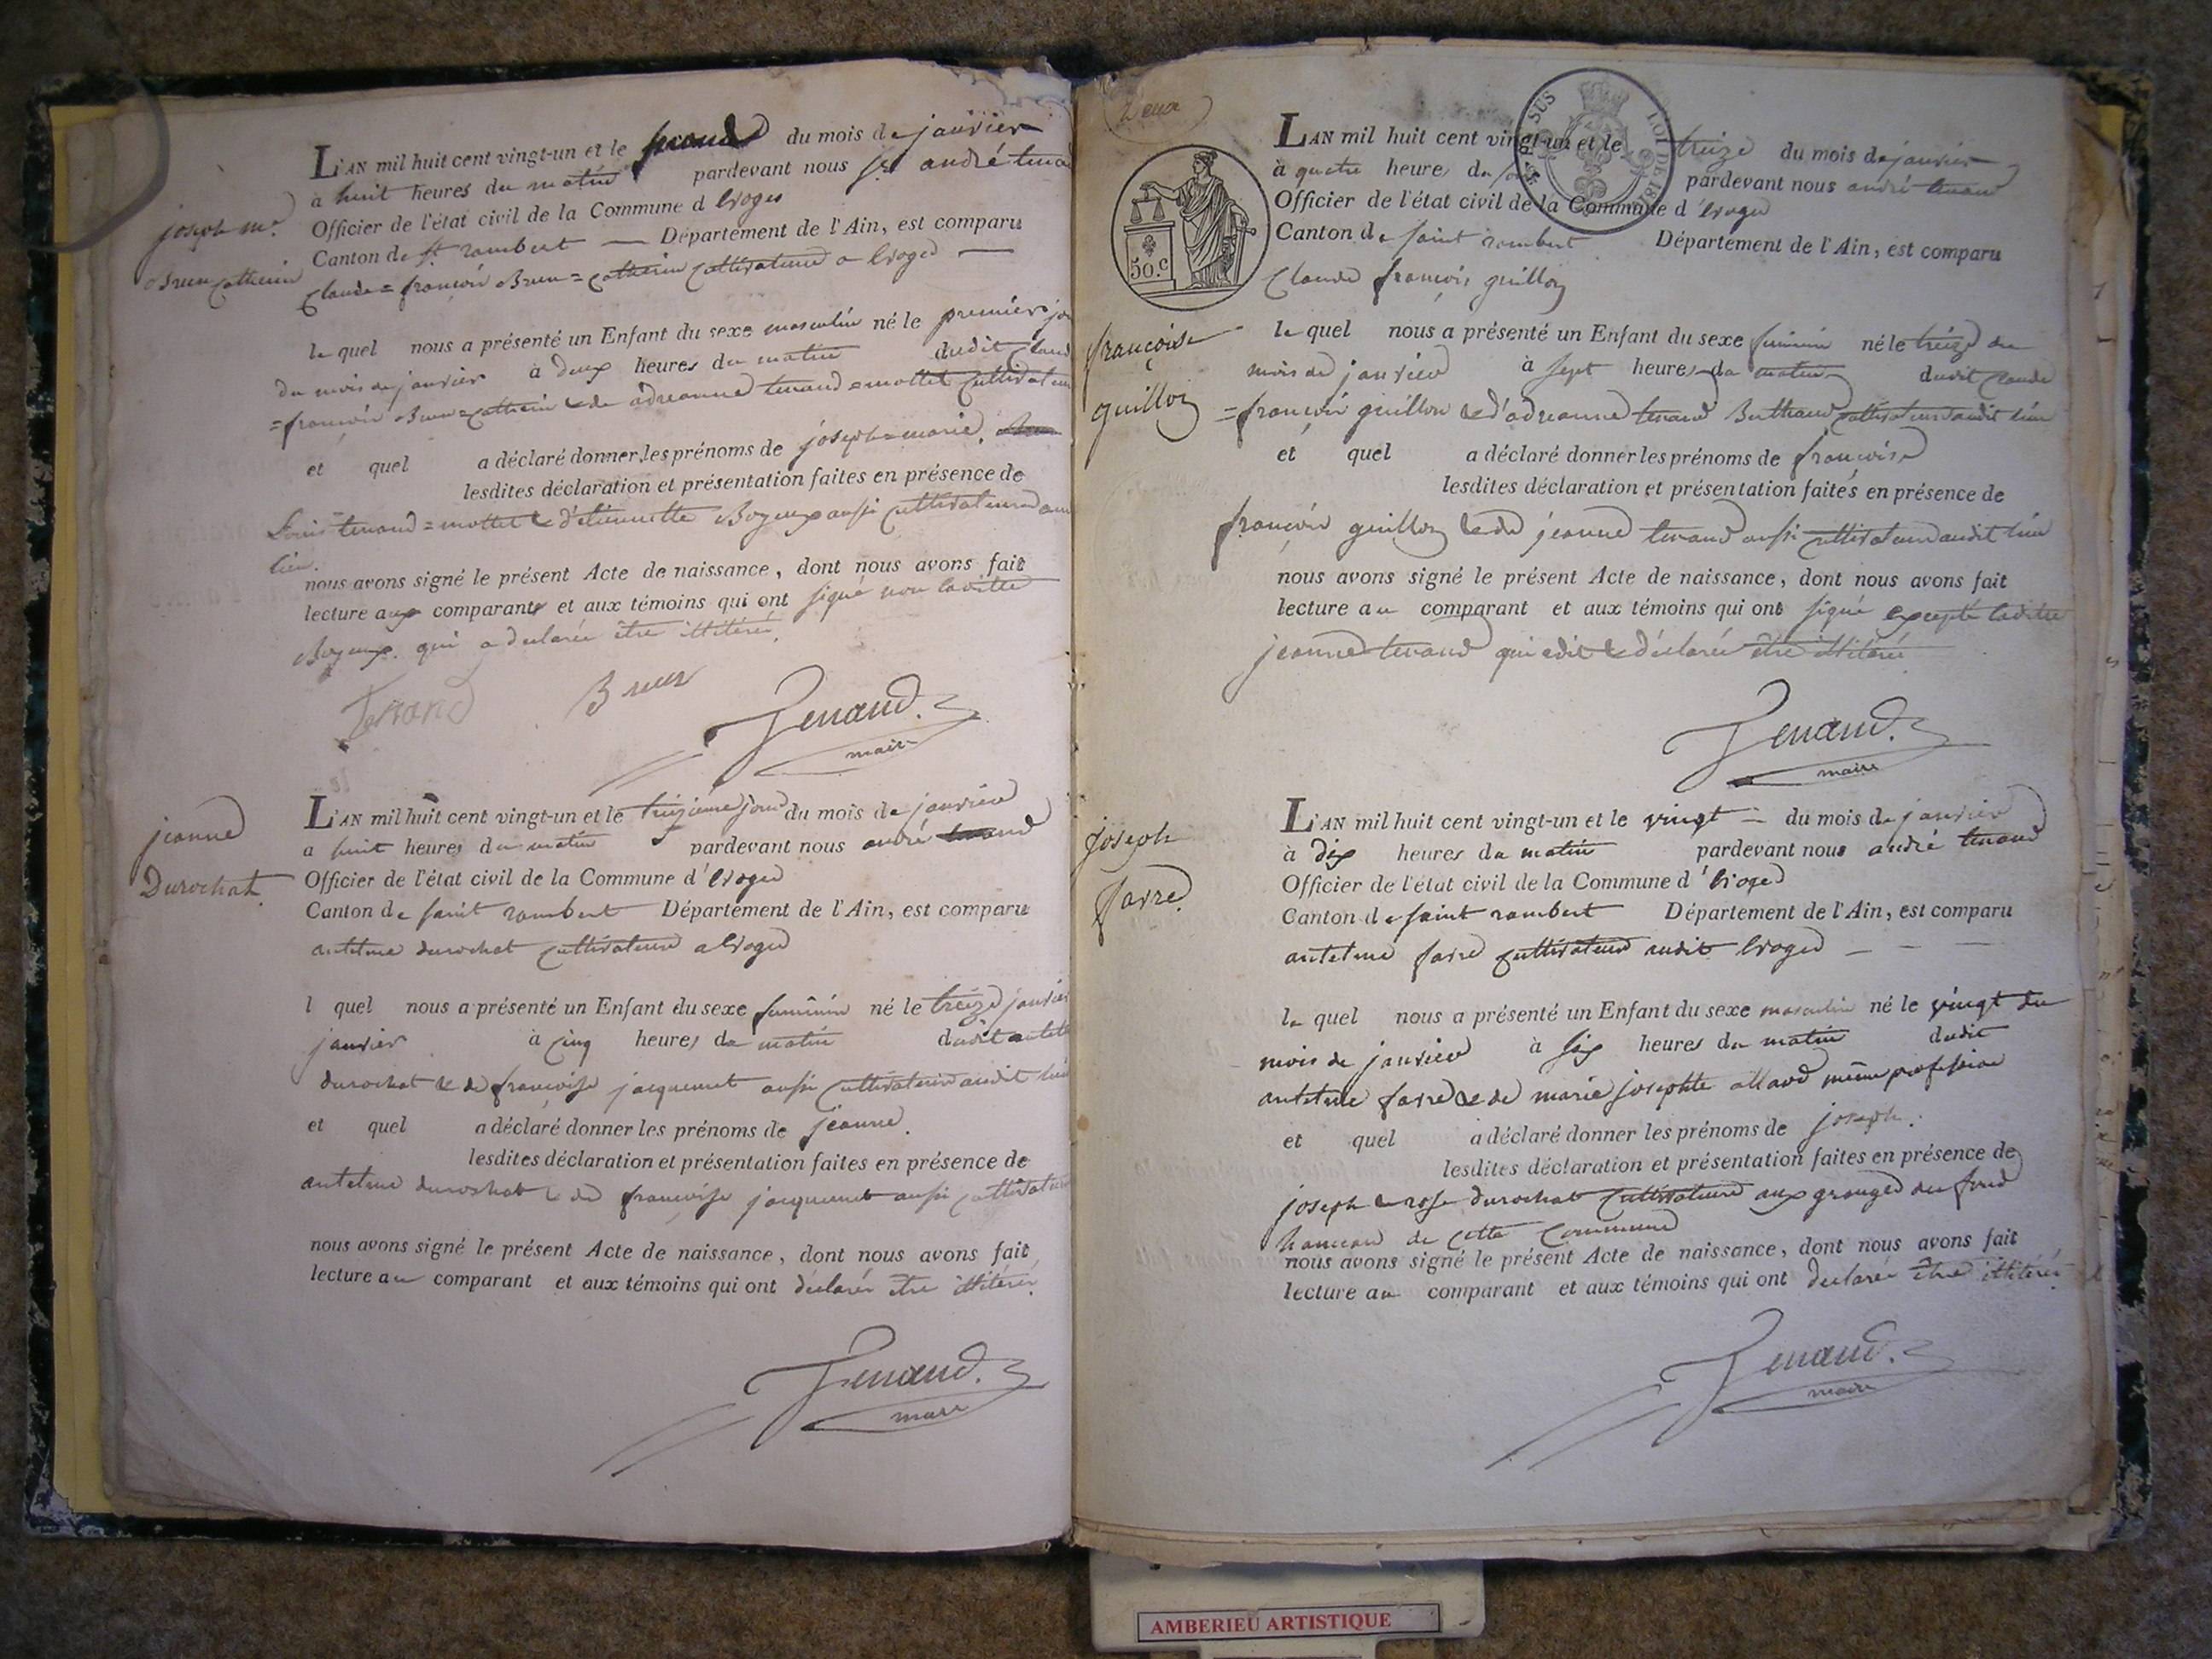 joseph m.e
Brun Catherin
L'AN mil huit cent vingt-un et le second du mois de janvier
à huit heures du matin pardevant nous sr. andré tena
Officier de l'état civil de la Commune d'Evoges
Canton de St. rambert — Département de l'Ain, est comparu
Claude=françois Brun=Catherin cultivateur a Evoges —
le quel nous a présenté un Enfant du sexe masculin né le premier jo
du mois de janvier à deux heures du matin dudit Claud
=françois Brun=catherin & de adreanne tenand=mottet cultivateurs
et quel a déclaré donner les prénoms de joseph=marie.
lesdites déclaration et présentation faites en présence de
Louis tenand=mottet & d'etiennette Boyeux aussi cultivateurs au
lieu.
nous avons signé le présent Acte de naissance, dont nous avons fait
lecture aux comparants et aux témoins qui ont signé non laditte
Boyeux qui a declarée être illitéré.
Tenand Brun Tenand.
maire
jeanne
Durochat.
L'AN mil huit cent vingt-un et le treizieme jour du mois de janvier
a huit heures du matin pardevant nous andré tenand
Officier de l'état civil de la Commune d'Evoges
Canton de saint rambert Département de l'Ain, est comparu
antelme durochat cultivateur a Evoges
l quel nous a présenté un Enfant du sexe feminin né le treize janvier
janvier à cinq heures du matin dudit antel
durochat & de françoise jacquemet aussi cultivateurs audit lieu
et quel a déclaré donner les prénoms de jeanne.
lesdites déclaration et présentation faites en présence de
antelme durochat & de françoise jacquemet aussi cultivateurs
nous avons signé le présent Acte de naissance, dont nous avons fait
lecture au comparant et aux témoins qui ont declarés être illitéré.
Tenand.
maire
Deux
50.c
SUS
LOI DE 18
françoise
guillon
L'AN mil huit cent vingt-un et le treize du mois de janvier
à quatre heures du soir pardevant nous andré tenand
Officier de l'état civil de la Commune d'Evoges
Canton de saint rambert Département de l'Ain, est comparu
Claude françois guillon
le quel nous a présenté un Enfant du sexe feminin né le treize du
mois de janvier à sept heures du matin dudit Claude
=françois guillon & d'adreanne tenand Buthaud cultivateurs audit lieu
et quel a déclaré donner les prénoms de françoise
lesdites déclaration et présentation faites en présence de
françois guillon & de jeanne tenand aussi cultivateurs audit lieu
nous avons signé le présent Acte de naissance, dont nous avons fait
lecture au comparant et aux témoins qui ont signé excepté laditte
jeanne tenand qui a dit & déclarée être illitéré
Tenand.
maire
joseph
favre.
L'AN mil huit cent vingt-un et le vingt = du mois de janvier
à dix heures du matin pardevant nous andré tenand
Officier de l'état civil de la Commune d'Evoges
Canton de saint rambert Département de l'Ain, est comparu
antelme favre cultivateur audit Evoges — — —
le quel nous a présenté un Enfant du sexe masculin né le vingt du
mois de janvier à six heures du matin dudit
antelme favre & de marie josephte allard même profession
et quel a déclaré donner les prénoms de joseph.
lesdites déclaration et présentation faites en présence de
joseph & rose durochat cultivateurs aux granges du fond
hameau de cette Commune
nous avons signé le présent Acte de naissance, dont nous avons fait
lecture au comparant et aux témoins qui ont declaré être illitéré.
Tenand.
maire
AMBERIEU ARTISTIQUE